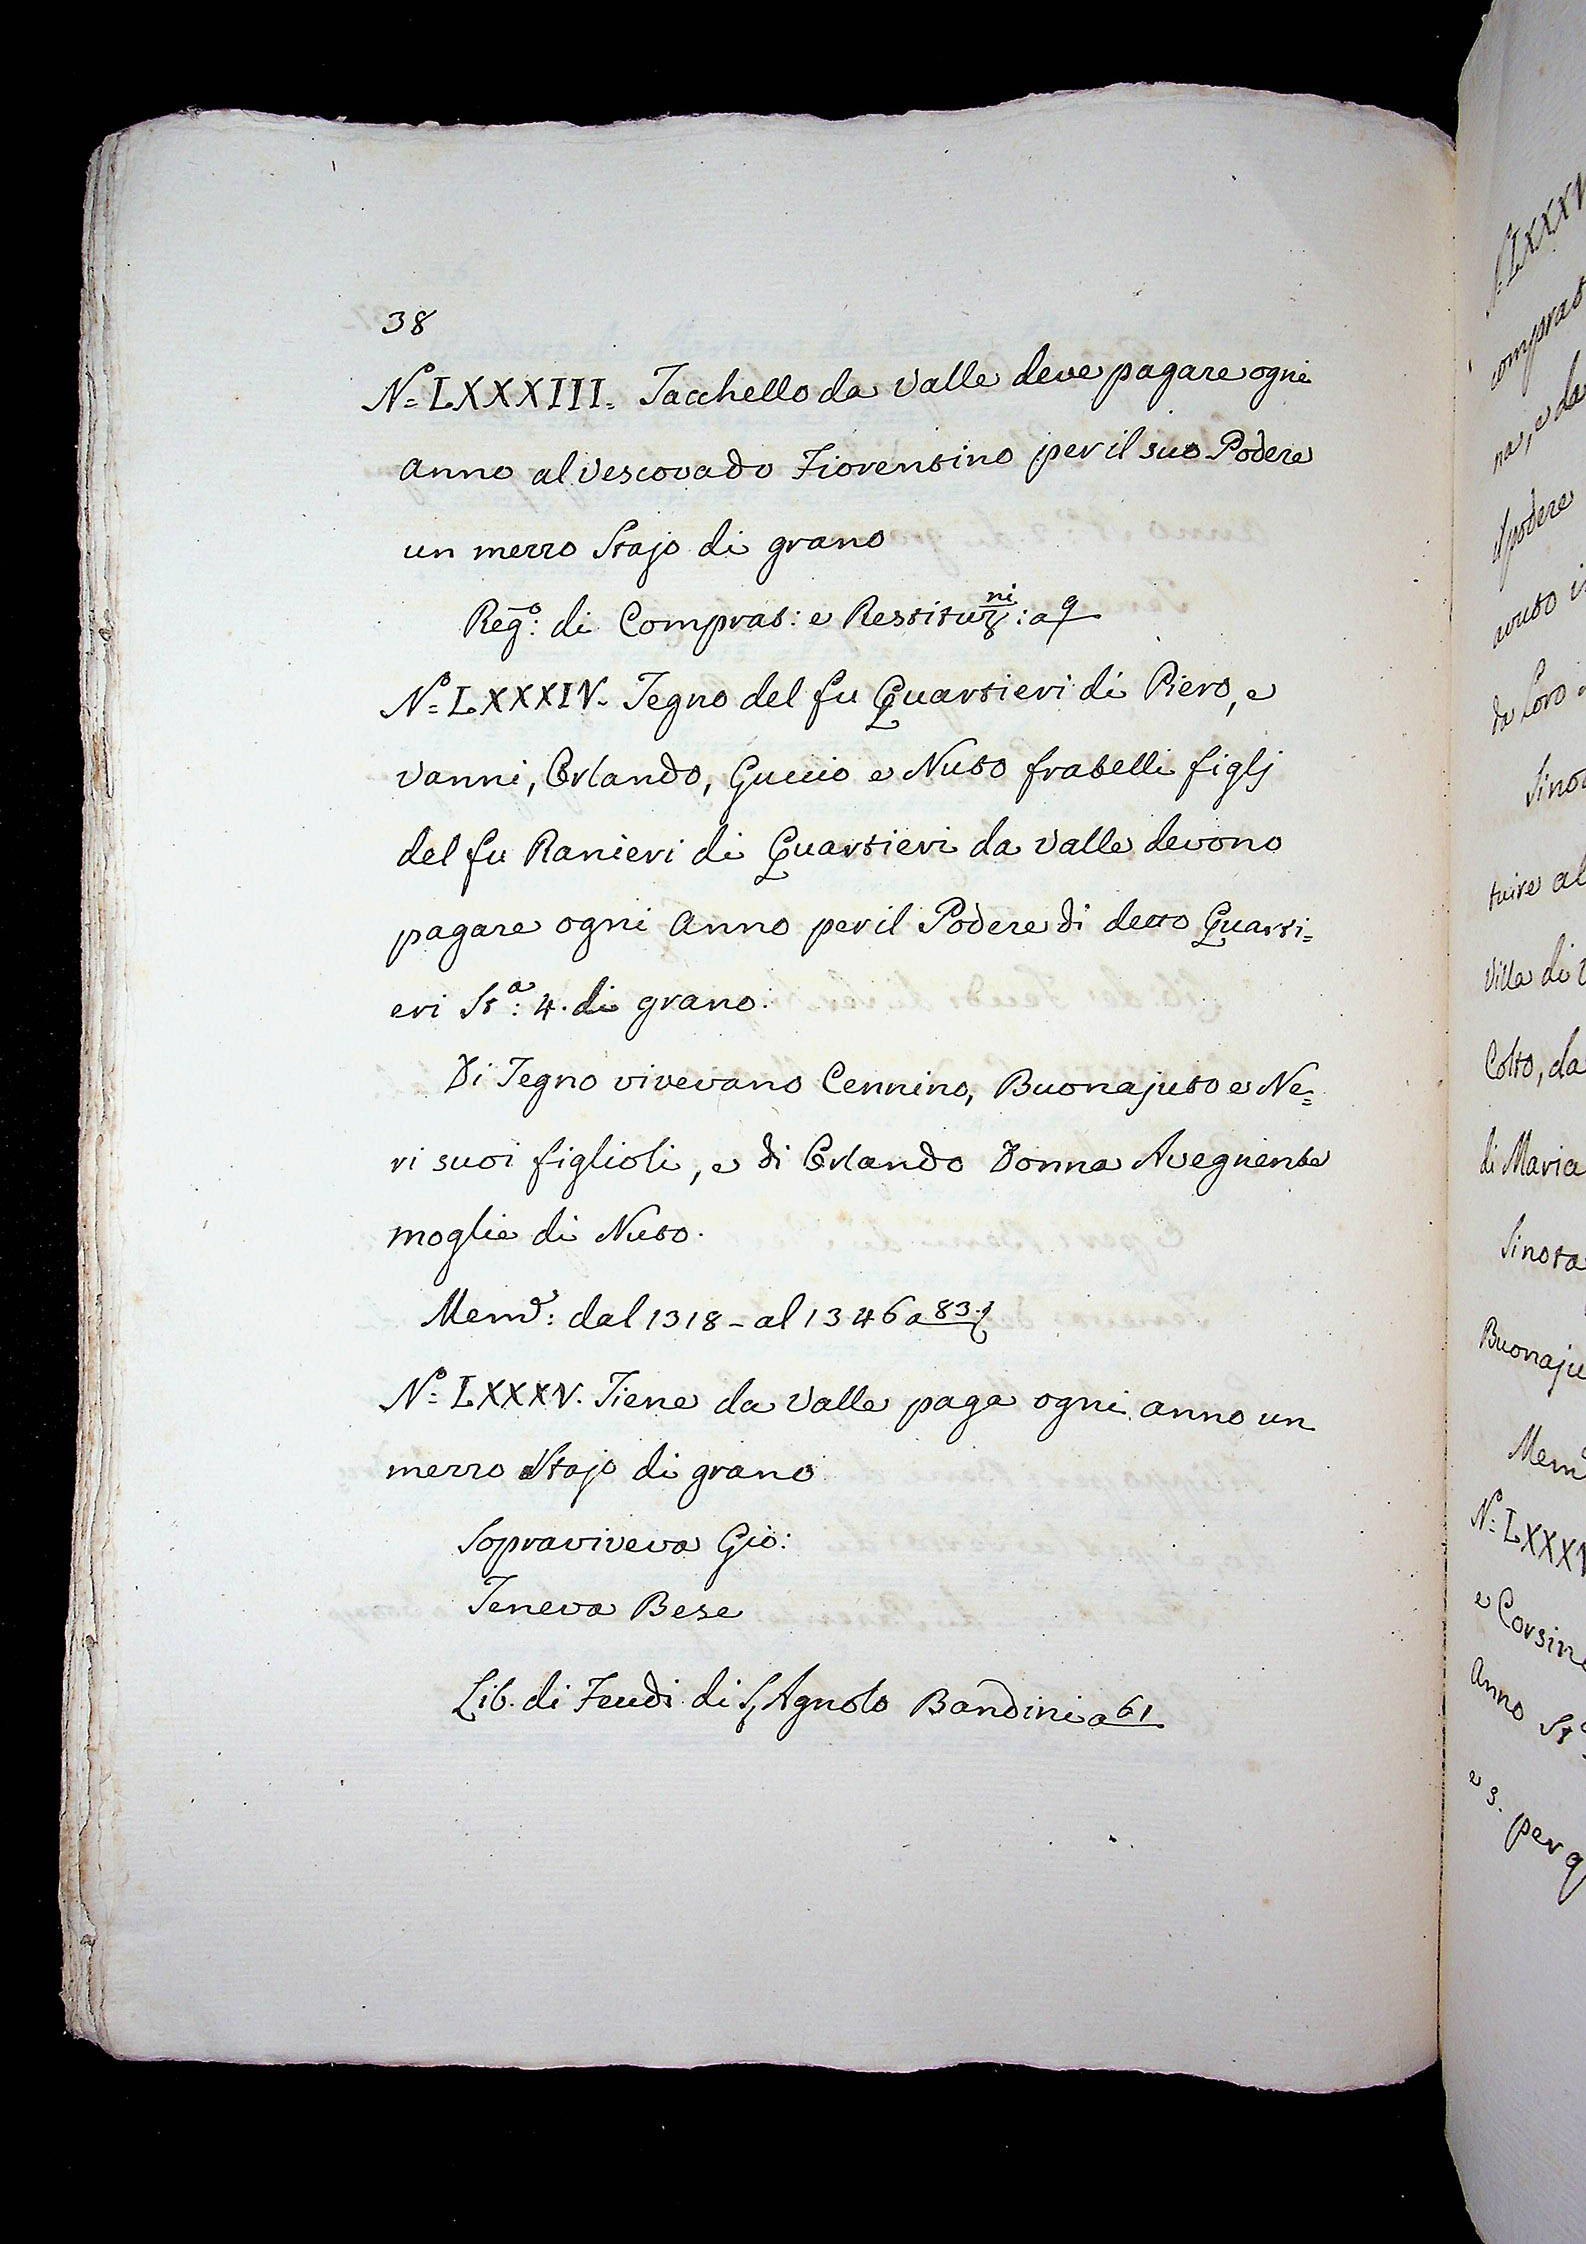 38
N.º LXXXIII. Tacchello da Valle deve pagare ogni
anno al Vescovado Fiorentino per il suo Podere
un mezzo Stajo di grano
Reg.º: di Comprat: e Restituz.ni: a 9
N.º LXXXIV. Tegno del fu Quartieri di Piero, e
Vanni, Orlando, Guccio e Nuto fratelli figlj
del fu Ranieri di Quartieri da Valle devono
pagare ogni Anno per il Podere di detto Quarti=
eri St.a: 4. di grano:
Di Tegno vivevano Cennino, Buonajuto e Ne=
ri suoi figlioli, e di Orlando Donna Avegnente
moglie di Nuto.
Mem.e: dal 1318 - al 1346 a 83.
N.º LXXXV. Tiene da Valle paga ogni anno un
mezzo Stajo di grano
Sopraviveva Gio:
Teneva Bese
Lib. di Feudi di S. Agnolo Bandini a 61
LXXXV
comprat
na, e da
il podere
avuto i
da Loro
tuire al
Villa di V
Colto, da
di Maria
Buonaju
Mem
N.º LXXXV
e Corsin
Anno St
e s. per q